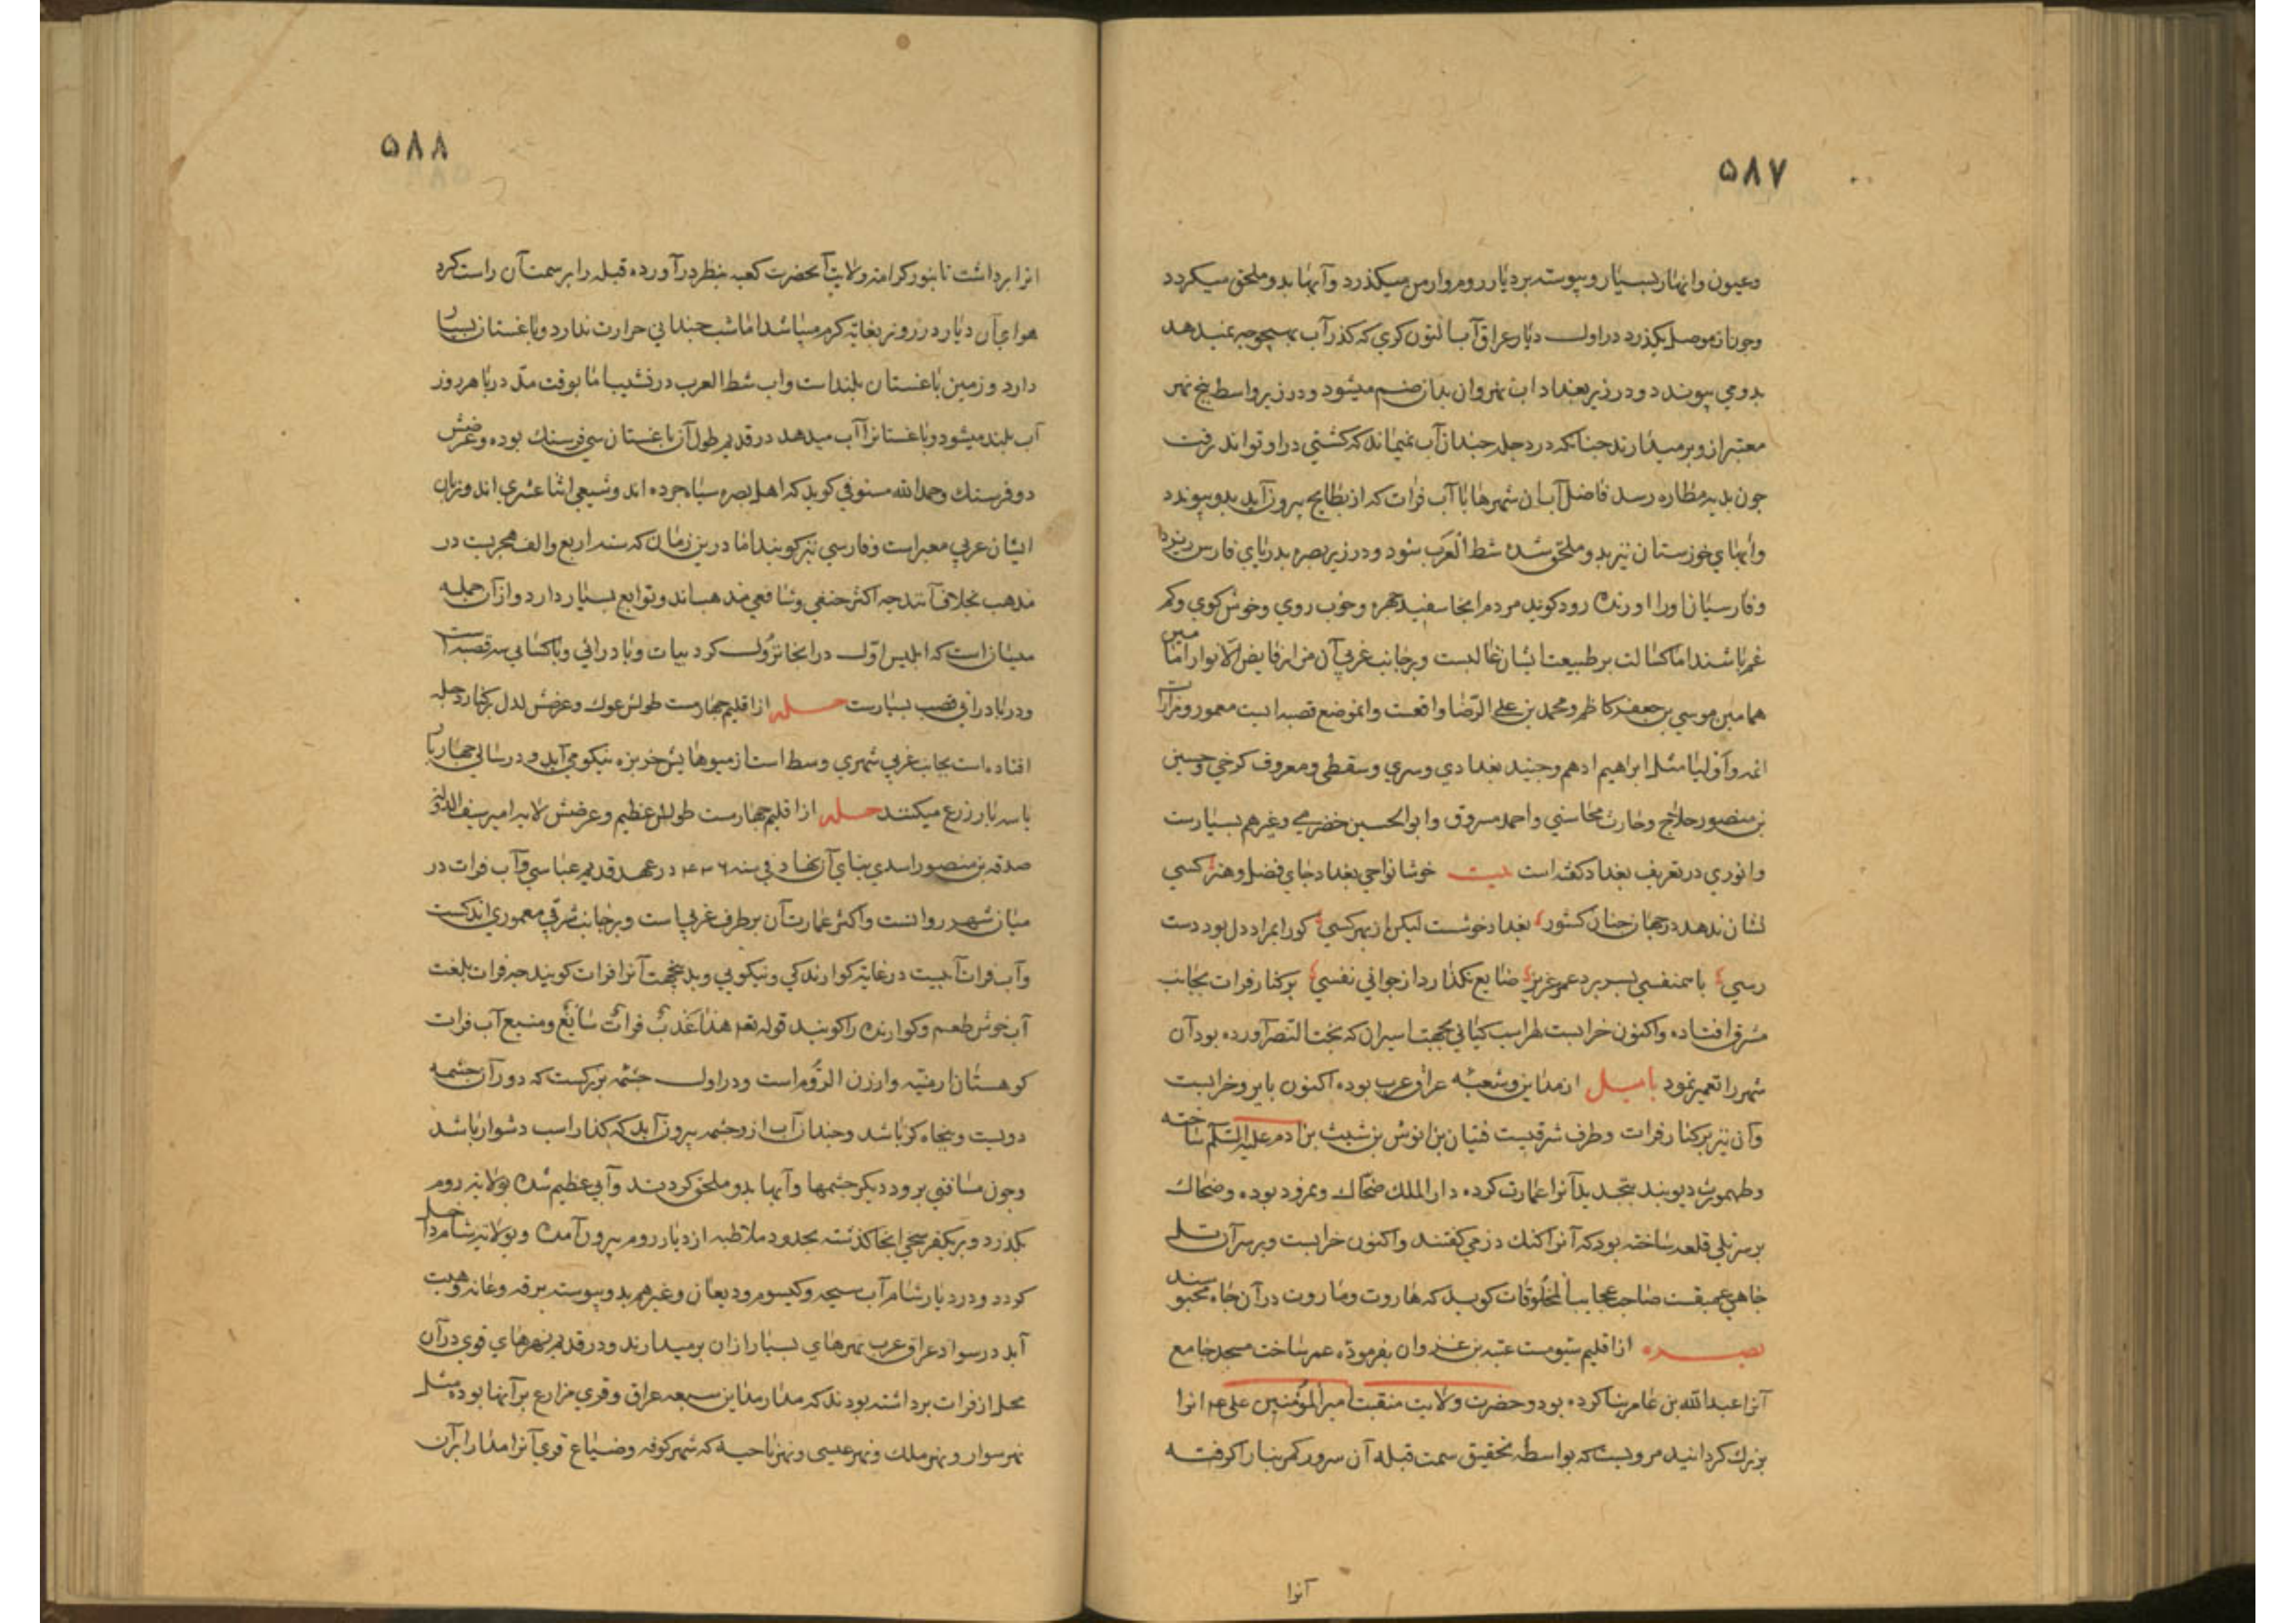 ۵۸۷
وعیون وانهار بسیار وپیوسته بر دیار روم وارمن میکذرد وآبها بدو ملحق میکردد
وچون از موصل بکذرد در اول دیار عراق آب التون کری که کذر آب بهیچوجه نمیدهد
بدو می پیوندد ودر زیر بغداد اب نهروان بدان ضم میشود ودر زیر واسط پنج نهر
معتبر ازو بر میدارند چنانکه در دجله چندان آب نمیماند که کشتی در او تواند رفت
چون بدیه مطاره رسد فاضل آب ان شهرها با آب فرات که از بطایح بیرون آید بدو پیوندد
وآبهای خوزستان نیز بدو ملحق شده شط العرب شود ودر زیر بصره بدریای فارس ریزد
وفارسیان اورا اورنده رود کویند مردم انجا سفید چهره وخوب روی وخوش کوی وکم
غم باشند اما کسالت بر طبیعت ایشان غالبست وبر جانب غربی آن مزار فایض الانوار امامین
همامین موسی بن جعفر کاظم ومحمد بن علی الرضا واقعست وانموضع قصبه ایست معمور ومزارات
ائمه واولیا مثل ابراهیم ادهم وجنید بغدادی وسری وسقطی ومعروف کرخی وحسین
بن منصور حلاج وحارث محاسبی واحمد مسروق وابوالحسین خضرمی وغیرهم بسیارست
وانوری در تعریف بغداد کفته است بیت خوشا نواحی بغداد جای فضل وهنر کسی
نشان ندهد در جهان چنان کشور بغداد خوشست لیکن از بهر کسی کورا بمراد دل بود دست
رسی با همنفسی بسر برد عمر عزیز ضایع نکذارد از جوانی نفسی بر کنار فرات بجانب
مشرق افتاده واکنون خرابست لهراسب کیانی بجهت اسیران که بخت النصر آورده بود آن
شهر را تعمیر نمود بابل از مداین وشعبه عراق عرب بوده اکنون بایر وخرابست
وآن نیز بر کنار فرات وطرف شرقیست قینان بن انوش بن شیث بن ادم علیه السلم ساخته
وطهمورث دیوبند بتجدید آنرا عمارت کرده دار الملک ضحاک ونمرود بوده وضحاک
بر سر تلی قلعه ساخته بود که آنرا کنک دز می کفتند واکنون خرابست وبر سر آن تل
چاهی عمیقست صاحب عجایب المخلوقات کوید که هاروت وماروت در آن چاه محبوسند
بصره از اقلیم سیومست عتبه بن غزوان بفرموده عمر ساخت مسجد جامع
آنرا عبدالله بن عامر بنا کرده بود وحضرت ولایت منقبت امیر المؤمنین علی عم انرا
بزرک کردانید مرویست که بواسطه تحقیق سمت قبله آن سرور کمر بنارا کرفته
آنرا
۵۸۸
انرا برداشت تا بنور کرامت ولایت آنحضرت کعبه بنظر درآورده قبله را بر سمت آن راست کرد
هوای آن دیار در روز بغایة کرم میباشد اما شب چندانی حرارت ندارد وباغستان بسیار
دارد وزمین باغستان بلند است واب شط العرب در نشیب اما بوقت مد دریا هر روز
آب بلند میشود وباغستانرا آب میدهد در قدیم طول آن باغستان سی فرسنک بوده وعرضش
دو فرسنک وحمد الله مستوفی کوید که اهل بصره سیاه چرده اند وشیعی اثنا عشری اند وزبان
ایشان عربی معبر است وفارسی نیز کویند اما درین زمان که سنه اربع والف هجریست در
مذهب بخلاف آنند چه اکثر حنفی وشافعی مذهب اند وتوابع بسیار دارد واز آن جمله
میسان است که ابلیس اول در انجا نزول کرد بیات وبادرائی وباکسائی سه قصبه است
ودر بادرائی قصب بسیارست حله از اقلیم چهارمست طولش عوک وعرضش لدل بر کنار دجله
افتاده است بجانب غربی شهری وسط است از میوهایش خربزه نیکو می آید ودر سالی چهار بار
یا سه بار زرع میکنند حله از اقلیم چهارمست طولش عظیم وعرضش لا به امیر سیف الدوله
صدقه بن منصور اسدی بنای آن نهاد فی سنه ۴۳۶ در عهد قدیم عباسی وآب فرات در
میان شهر روانست واکثر عمارت آن بر طرف غربی است وبر جانب شرقی معموری اندکست
وآب فرات آبیست در غایة کوارندکی ونیکویی وبدینجهت آنرا فرات کویند چه فرات بلغت
آب خوش طعم وکوارنده را کویند قوله تعم هذا عَذبٌ فراتٌ سائغٌ ومنبع آب فرات
کوهستان ارمنیه وارزن الروم است ودر اول چشمه بزرکست که دور آن چشمه
دویست وپنجاه کز باشد وچندان آب ازو چشمه بیرون آید که کذار اسب دشوار باشد
وچون مسافتی برود دیکر چشمها وآبها بدو ملحق کردند وآبی عظیم شده بولایة روم
بکذرد وبر یکفرسخی انجا کذشته بحدود ملاطیه از دیار روم بیرون آمده وبولایة شام داخل
کردد ودر دیار شام آب سیحه وکیسوم ودیعان وغیرهم بدو پیوسته برقه وعانه وهیت
آید در سواد عراق عرب نهرهای بسیار ازان بر میدارند ودر قدیم نهرهای قوی در آن
محل از فرات برداشته بودند که مدار مداین سبعه عراق وقری مزارع بر آنها بوده مثل
نهر سوار ونهر ملک ونهر عیسی ونهر ناحیه که شهر کوفه وضیاع قوی آنرا مدار بر آن